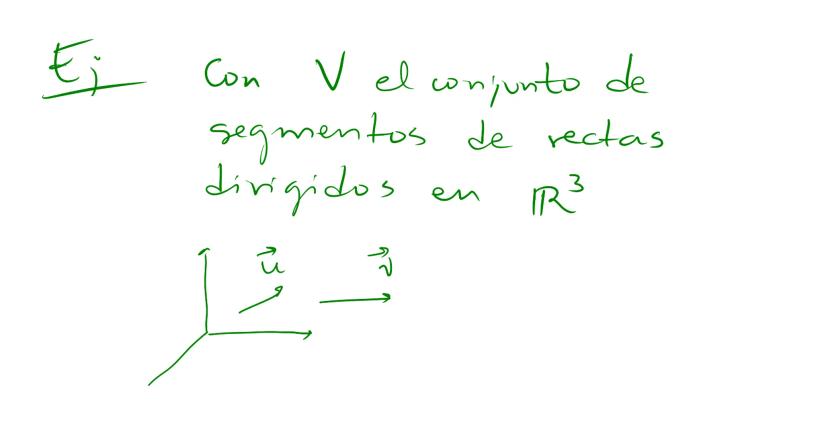 Ej Con V el conjunto de
segmentos de rectas
dirigidos en ℝ³
u⃗ v⃗